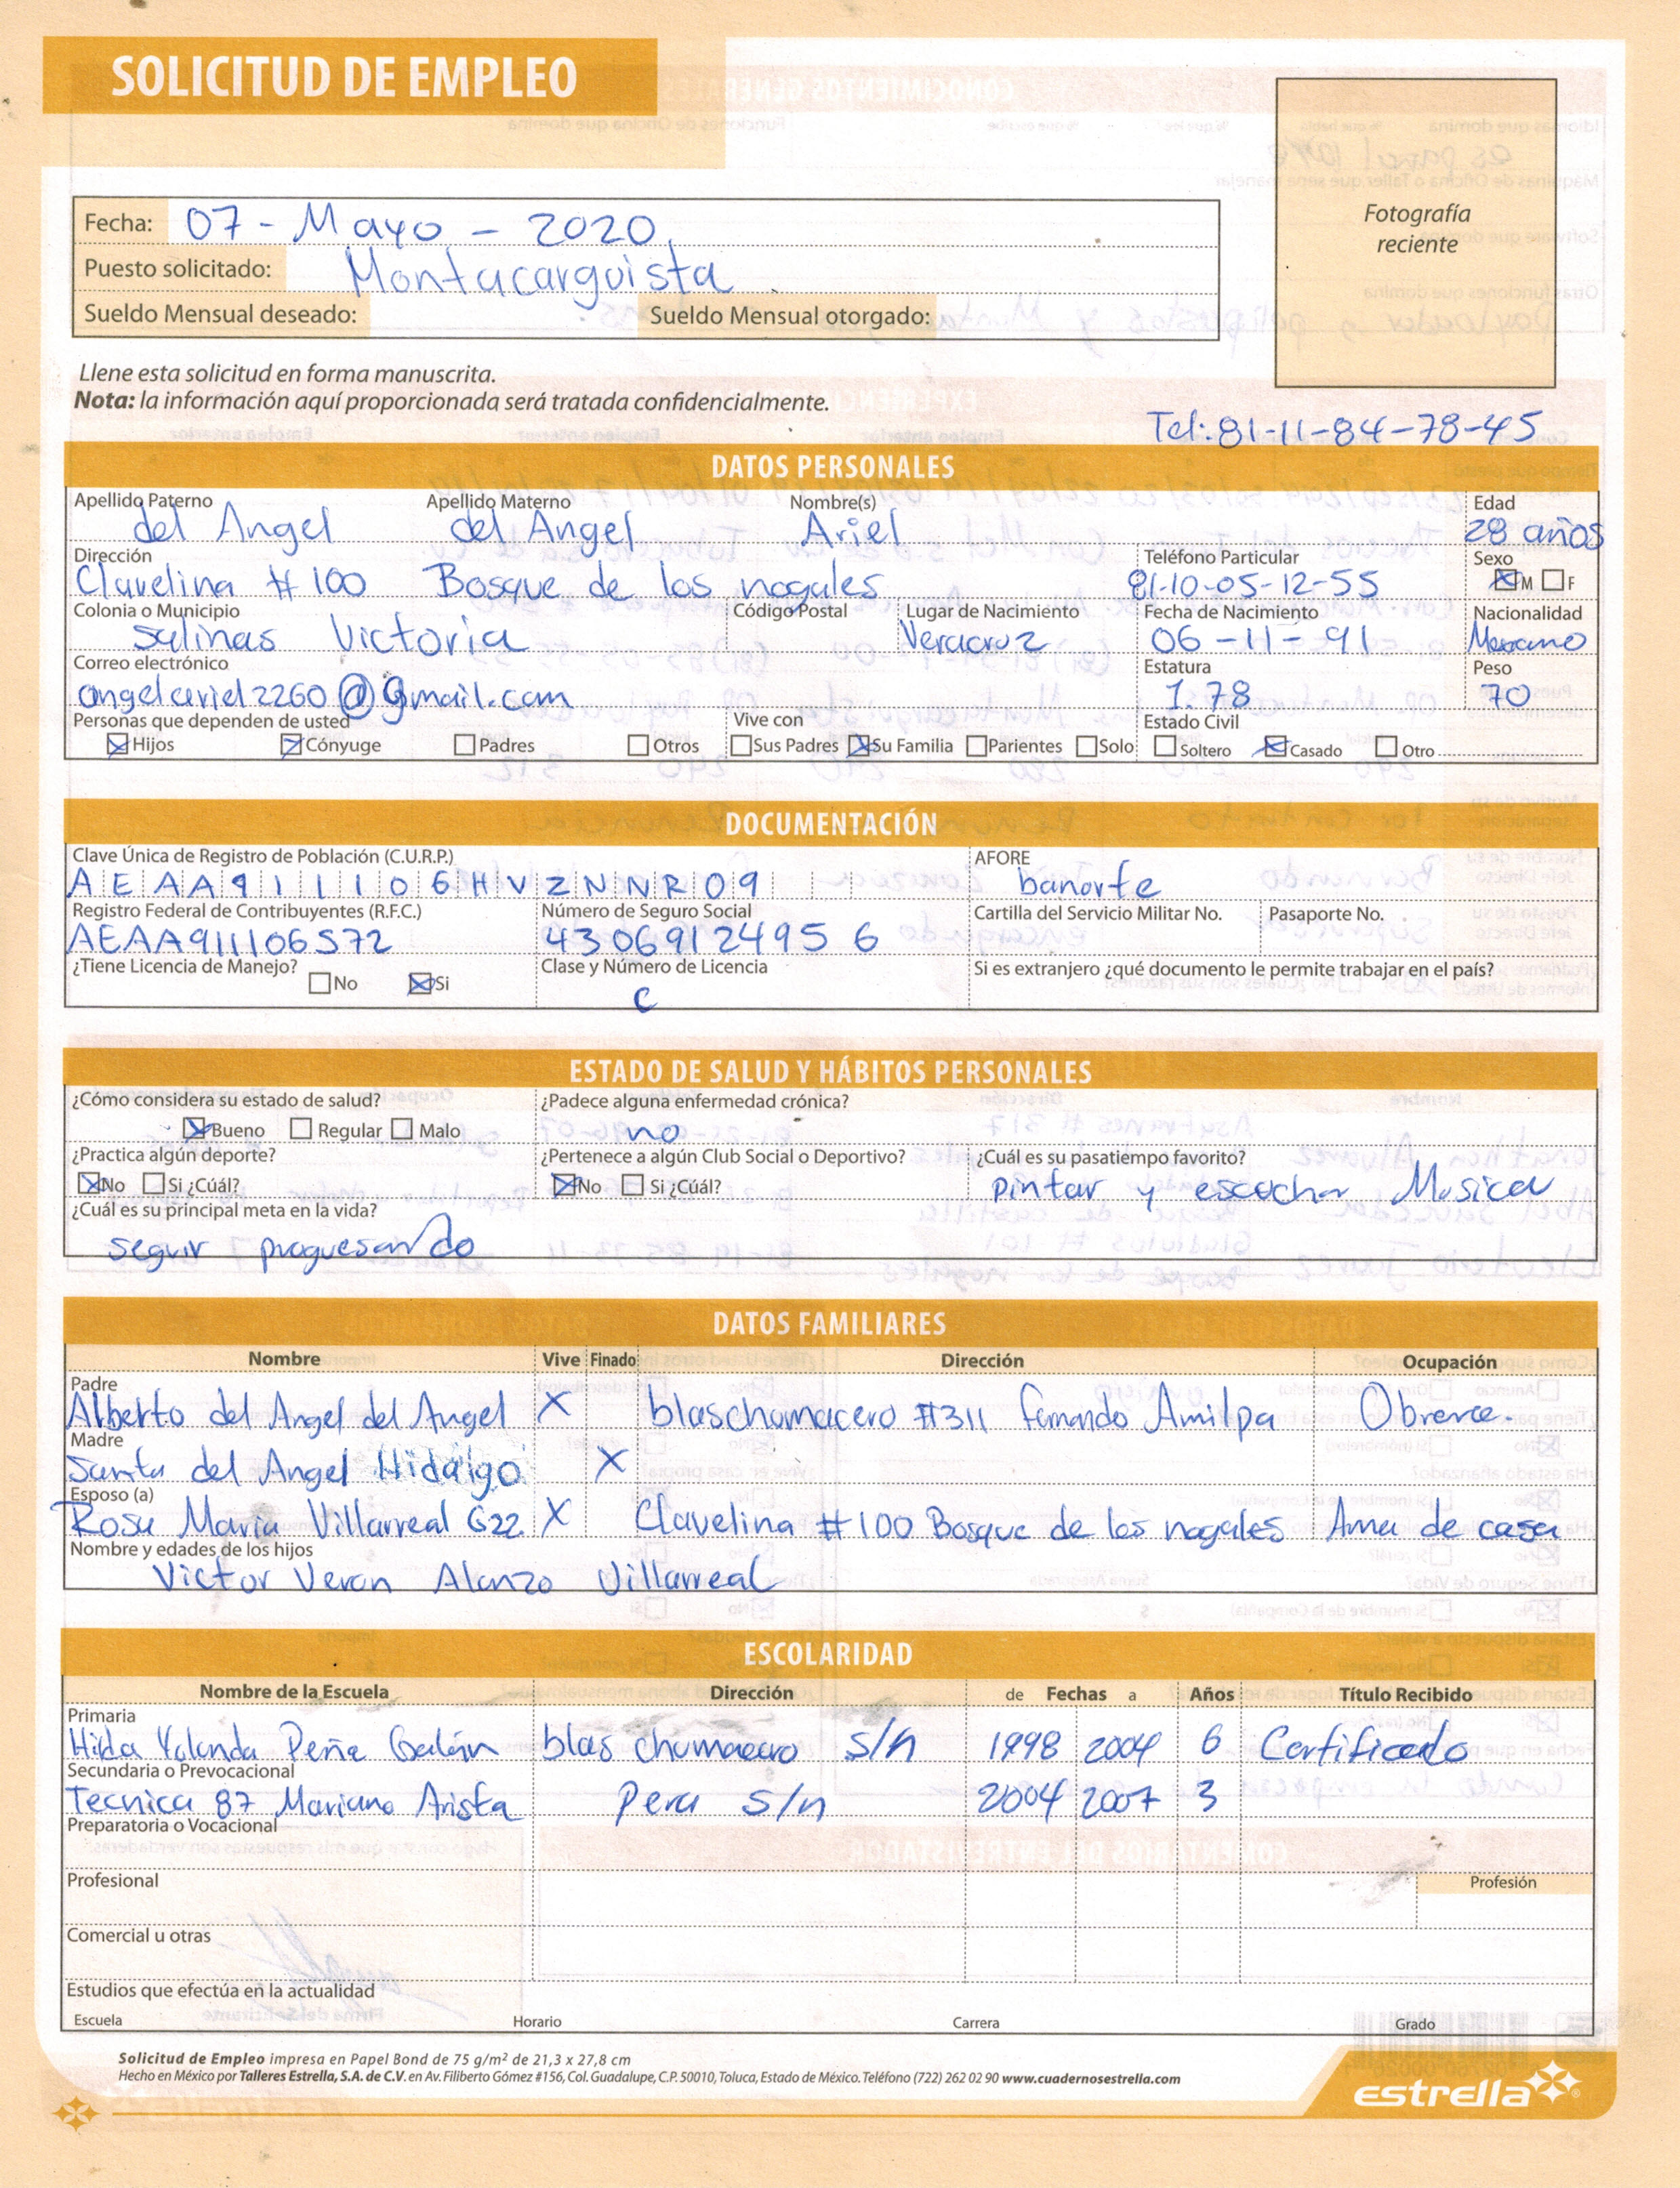 SOLICITUD DE EMPLEO
Fotografía
reciente
Fecha: 07 - Mayo - 2020
Puesto solicitado: Montacarguista
Sueldo Mensual deseado: Sueldo Mensual otorgado:
Llene esta solicitud en forma manuscrita.
Nota: la información aquí proporcionada será tratada confidencialmente.
Tel: 81-11-84-78-45
DATOS PERSONALES
Apellido Paterno Apellido Materno Nombre(s) Edad
del Angel del Angel Ariel 28 años
Dirección Teléfono Particular Sexo
Clavelina # 100 Bosque de los nogales 81-10-05-12-55 M F
Colonia o Municipio Código Postal Lugar de Nacimiento Fecha de Nacimiento Nacionalidad
Salinas Victoria Veracruz 06-11-91
Correo electrónico Estatura Peso
angelariel2260@gmail.com 1.78 70
Personas que dependen de usted Vive con Estado Civil
Hijos Cónyuge Padres Otros Sus Padres Su Familia Parientes Solo Soltero Casado Otro
DOCUMENTACIÓN
Clave Única de Registro de Población (C.U.R.P.) AFORE
AEAA911106HVZNNR09 banorte
Registro Federal de Contribuyentes (R.F.C.) Número de Seguro Social Cartilla del Servicio Militar No. Pasaporte No.
AEAA911106S72 43069124956
¿Tiene Licencia de Manejo? Clase y Número de Licencia Si es extranjero ¿qué documento le permite trabajar en el país?
No Si C
ESTADO DE SALUD Y HÁBITOS PERSONALES
¿Cómo considera su estado de salud? ¿Padece alguna enfermedad crónica?
Bueno Regular Malo no
¿Practica algún deporte? ¿Pertenece a algún Club Social o Deportivo? ¿Cuál es su pasatiempo favorito?
No Si ¿Cúál? No Si ¿Cúál? pintar y escuchar Musica
¿Cuál es su principal meta en la vida?
seguir
DATOS FAMILIARES
Nombre Vive Finado Dirección Ocupación
Padre
Alberto del Angel del Angel X blaschumacero #311 fernando Amilpa
Madre
Santa del Angel Hidalgo X
Esposo (a)
Rosa Maria Villarreal Gzz X Clavelina #100 Bosque de los nogales Ama de casa
Nombre y edades de los hijos
Victor Alonzo Villarreal
ESCOLARIDAD
Nombre de la Escuela Dirección de Fechas a Años Título Recibido
Primaria
Hilda Yolanda Peña blas chumacero s/n 1998 2004 6 Certificado
Secundaria o Prevocacional
Tecnica 87 Mariano Arista Pera s/n 2004 2007 3
Preparatoria o Vocacional
Profesional Profesión
Comercial u otras
Estudios que efectúa en la actualidad
Escuela Horario Carrera Grado
Solicitud de Empleo impresa en Papel Bond de 75 g/m² de 21,3 x 27,8 cm
Hecho en México por Talleres Estrella, S.A. de C.V. en Av. Filiberto Gómez #156, Col. Guadalupe, C.P. 50010, Toluca, Estado de México. Teléfono (722) 262 02 90 www.cuadernosestrella.com
estrella